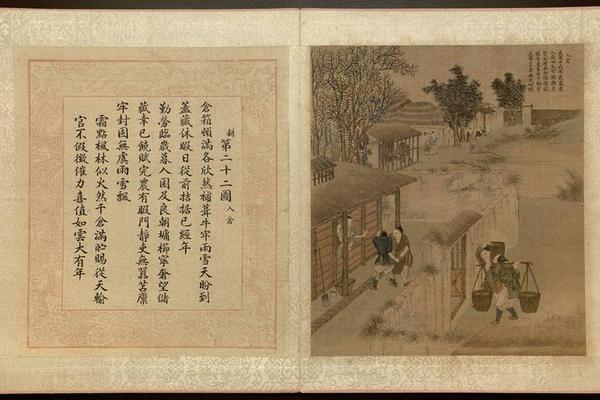 耕 第二十二圖 入倉
倉箱頓滿各欣然補葺牛牢雨雪天盼到
蓋藏休暇日從前拮据已經年
勤勞臨歲暮入囷及良朝墉櫛寧奢望儲
藏幸已饒賦完農有暇門靜吏無囂苦廩
牢封固無虞雨雪飄
霜點楓林似火然千倉滿貯賜從天輸
官不假徵催力喜值如雲大有年
入倉